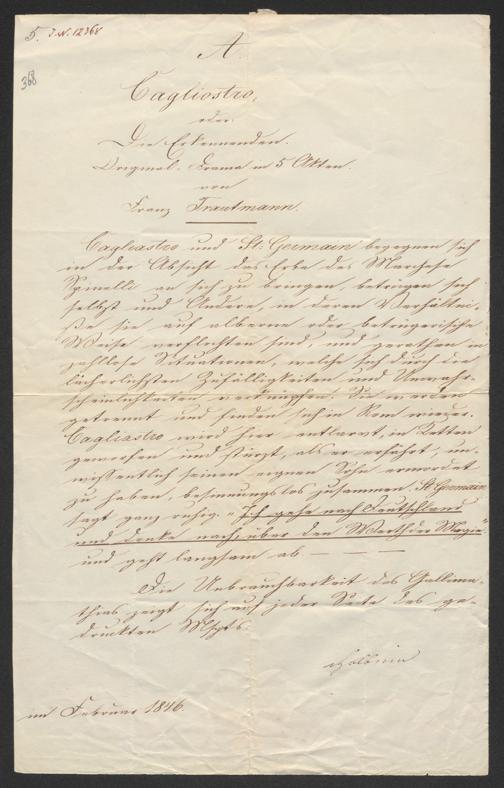 5. J.N. 12368
368
A
Cagliostro,
oder
Die Erkennenden.
Original-Drama in 5 Akten.
von
Franz Trautmann.
Cagliastro und St. Germain begegnen sich
in der Absicht das Erbe des Marchese
Spinelli an sich zu bringen, betrügen sich
selbst und Andere, in deren Verhältni-
ße sie auf alberne oder betrügerische
Weise verflochten sind, und gerathen in
zahllose Situationen, welche sich durch die
lächerlichsten Zufälligkeiten und Unwahr-
scheinlichkeiten verknüpfen. Sie werden
getrennt und finden sich in Rom wieder.
Cagliastro wird hier entlarvt, in Ketten
geworfen und stürzt, als er erfährt, un-
wissentlich seinen eignen Sohn ermordet
zu haben, besinnungslos zusammen. St. Germain
sagt ganz ruhig: „Ich gehe nach Deutschland
und denke nach über den Werth der Magie"
und geht langsam ab — — —
Die Unbrauchbarkeit des Gallima-
thias zeigt sich auf jeder Seite des ge-
druckten Mspts.
Holbein
im Februar 1846.